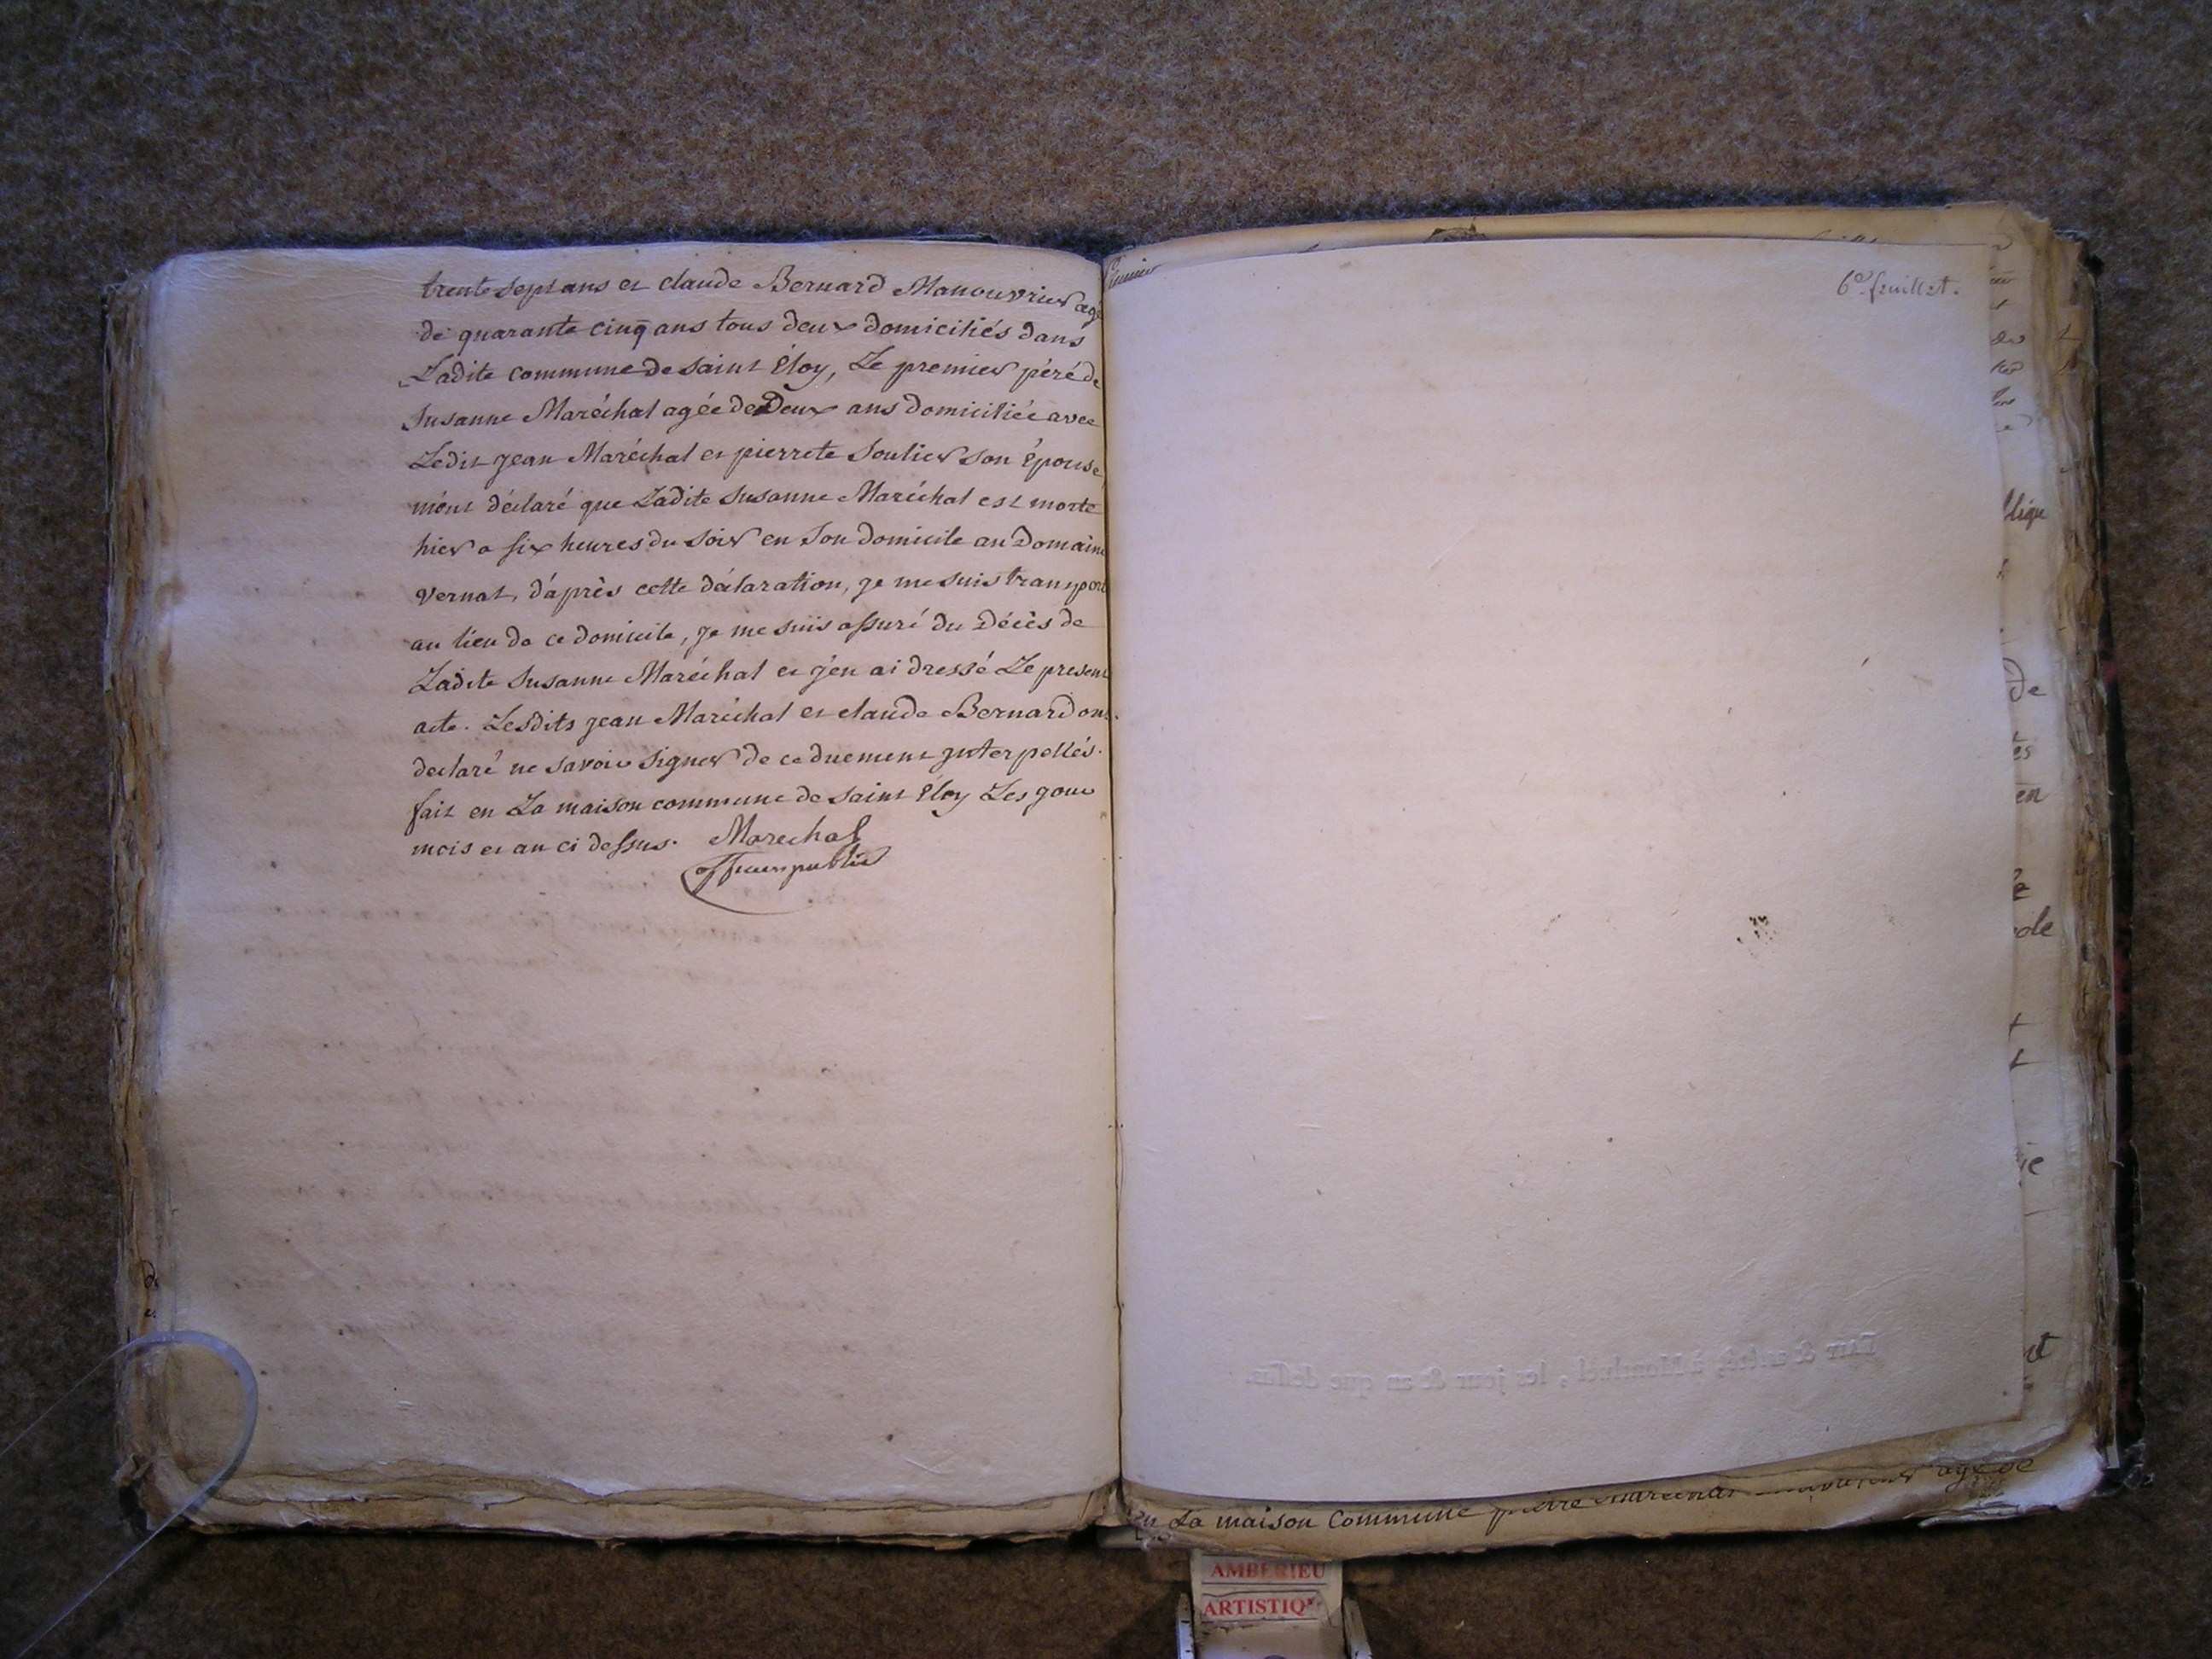 trente sept ans et claude Bernard Manouvrier agé
de quarante cinq ans tous deux domiciliés dans
Ladite commune de saint Éloy, Le premier péré de
Susanne Maréchal agée de Deux ans domiciliée avec
Ledit jean Maréchal et pierrete Soulier son Épouse
m'ont déclaré que Ladite Susanne Maréchal est morte
hier a six heures du soir en son domicile au Domaine
vernat, d'après cette déclaration, je me suis transport
au lieu de ce domicile, je me suis assuré du Décès de
Ladite Susanne Maréchal et j'en ai dressé Le present
acte. Lesdits jean Maréchal et claude Bernard ont
declaré ne savoir signer de ce duement jnterpellés.
fait en La maison commune de saint Éloy Les jour
mois et an ci dessus. Marechal
officier public
6e. feuillet.
Fait & arrêté à Montluel, les jour & an que dessus.
La maison Commune pierre marechal agé de
AMBERIEU
ARTISTIQ